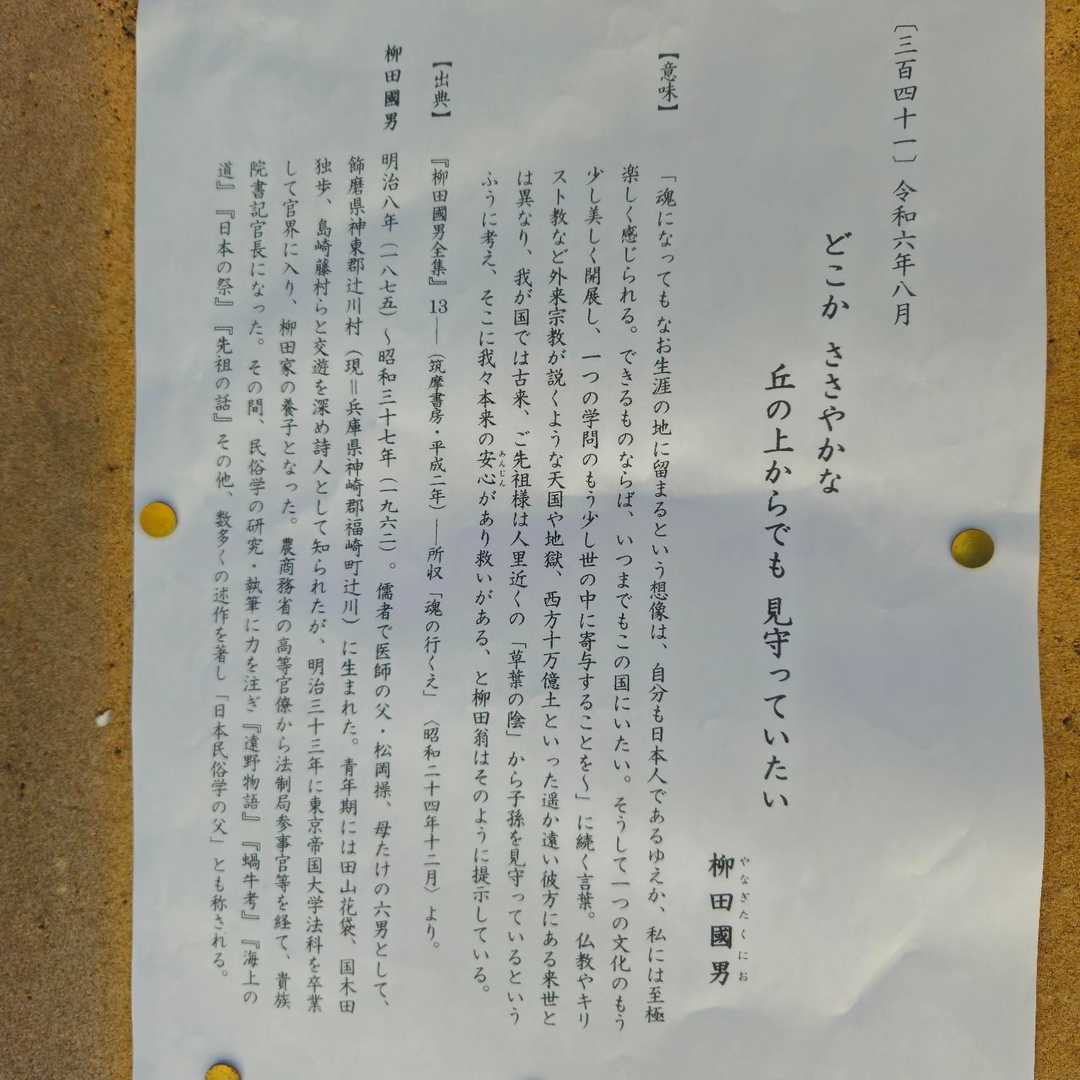 〔三百四十一〕令和六年八月
どこか ささやかな
丘の上からでも 見守っていたい
柳田國男
やなぎたくにお
【意味】
「魂になっても なお生涯の地に留まるという想像は、自分も日本人であるゆえか、私には至極
楽しく感じられる。できるものならば、いつまでもこの国にいたい。そうして一つの文化のもう
少し美しく開展し、一つの学問のもう少し世の中に寄与することを〜」に続く言葉。仏教やキリ
スト教など外来宗教が説くような天国や地獄、西方十万億土といった遥か遠い彼方にある来世と
は異なり、我が国では古来、ご先祖様は人里近くの「草葉の陰」から子孫を見守っているという
ふうに考え、そこに我々本来の安心があり救いがある、と柳田翁はそのように提示している。
あんじん
【出典】
『柳田國男全集』13――（筑摩書房・平成二年）――所収「魂の行くえ」〈昭和二十四年十二月〉より。
柳田國男 明治八年（一八七五）〜昭和三十七年（一九六二）。儒者で医師の父・松岡操、母たけの六男として、
飾磨県神東郡辻川村（現＝兵庫県神崎郡福崎町辻川）に生まれた。青年期には田山花袋、国木田
独歩、島崎藤村らと交遊を深め詩人として知られたが、明治三十三年に東京帝国大学法科を卒業
して官界に入り、柳田家の養子となった。農商務省の高等官僚から法制局参事官等を経て、貴族
院書記官長になった。その間、民俗学の研究・執筆に力を注ぎ『遠野物語』『蝸牛考』『海上の
道』『日本の祭』『先祖の話』その他、数多くの述作を著し「日本民俗学の父」とも称される。